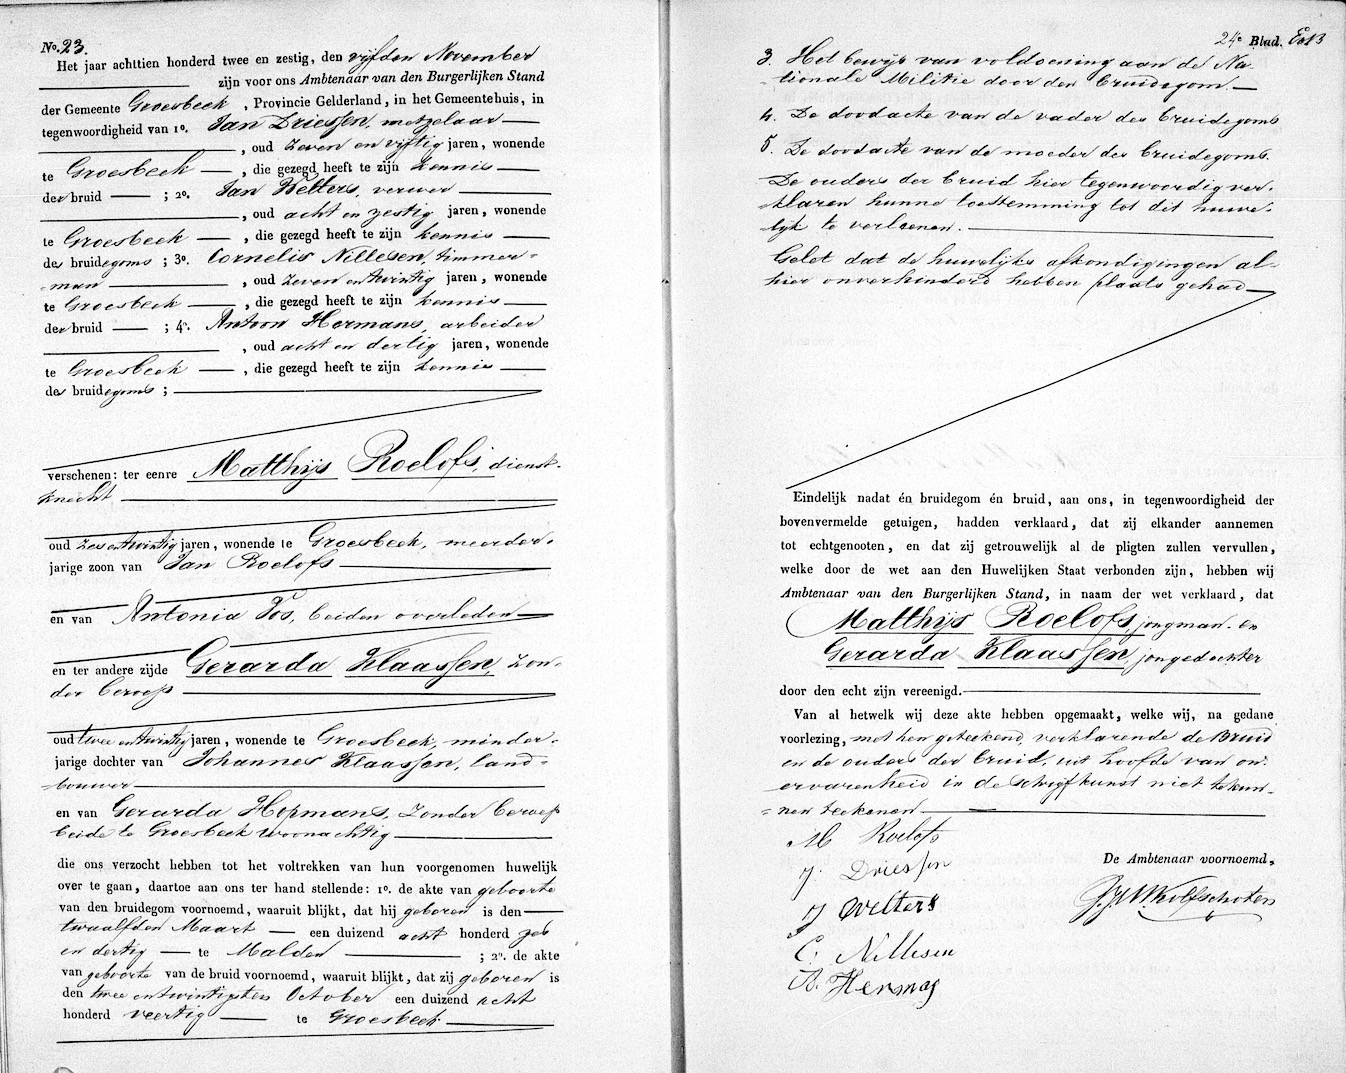 No. 23.
Het jaar achttien honderd twee en zestig, den vijfden November
zijn voor ons Ambtenaar van den Burgerlijken Stand
der Gemeente Groesbeek, Provincie Gelderland, in het Gemeentehuis, in
tegenwoordigheid van 1o. Jan Driessen, metzelaar
, oud zeven en vijftig jaren, wonende
te Groesbeek, die gezegd heeft te zijn kennis
der bruid ; 2o. Jan Welters, verwer
, oud acht en zestig jaren, wonende
te Groesbeek, die gezegd heeft te zijn kennis
des bruidegoms ; 3o. Cornelis Nillesen, timmer=
=man , oud zeven en twintig jaren, wonende
te Groesbeek, die gezegd heeft te zijn kennis
der bruid ; 4o. Antoon Hermans, arbeider
, oud acht en dertig jaren, wonende
te Groesbeek, die gezegd heeft te zijn kennis
des bruidegoms ;
verschenen: ter eenre Matthijs Roelofs, dienst-
knecht
oud zes en twintig jaren, wonende te Groesbeek, meerder-
jarige zoon van Jan Roelofs
en van Antonia Vos, beiden overleden
en ter andere zijde Gerarda Klaassen, zon-
der beroep
oud twee en twintig jaren, wonende te Groesbeek, minder-
jarige dochter van Johannes Klaassen, land=
=bouwer
en van Gerarda Hopmans, zonder beroep
beide te Groesbeek woonachtig
die ons verzocht hebben tot het voltrekken van hun voorgenomen huwelijk
over te gaan, daartoe aan ons ter hand stellende: 1o. de akte van geboorte
van den bruidegom voornoemd, waaruit blijkt, dat hij geboren is den
twaalfden Maart een duizend acht honderd zes
en dertig te Malden ; 2o. de akte
van geboorte van de bruid voornoemd, waaruit blijkt, dat zij geboren is
den twee en twintigsten October een duizend acht
honderd veertig te Groesbeek
24e Blad.
3. Het bewijs van voldoening aan de Na-
tionale Militie door den bruidegom.
4. De doodacte van de vader des bruidegoms
5. De doodacte van de moeder des bruidegoms.
De ouders der bruid hier tegenwoordig ver-
klaren hunne toestemming tot dit huwe-
lijk te verleenen.
Gelet dat de huwelijks afkondigingen al-
hier onverhinderd hebben plaats gehad
Eindelijk nadat én bruidegom én bruid, aan ons, in tegenwoordigheid der
bovenvermelde getuigen, hadden verklaard, dat zij elkander aannemen
tot echtgenooten, en dat zij getrouwelijk al de pligten zullen vervullen,
welke door de wet aan den Huwelijken Staat verbonden zijn, hebben wij
Ambtenaar van den Burgerlijken Stand, in naam der wet verklaard, dat
Matthijs Roelofs, jongman. en
Gerarda Klaassen, jongedochter
door den echt zijn vereenigd.
Van al hetwelk wij deze akte hebben opgemaakt, welke wij, na gedane
voorlezing, met hen geteekend, verklarende de Bruid
en de ouders der bruid, uit hoofde van on-
ervarenheid in de schrijfkunst niet te kun-
=nen teekenen
M Roelofs
J. Driessen
De Ambtenaar voornoemd,
J Welters
C. Nillesen
A. Hermas